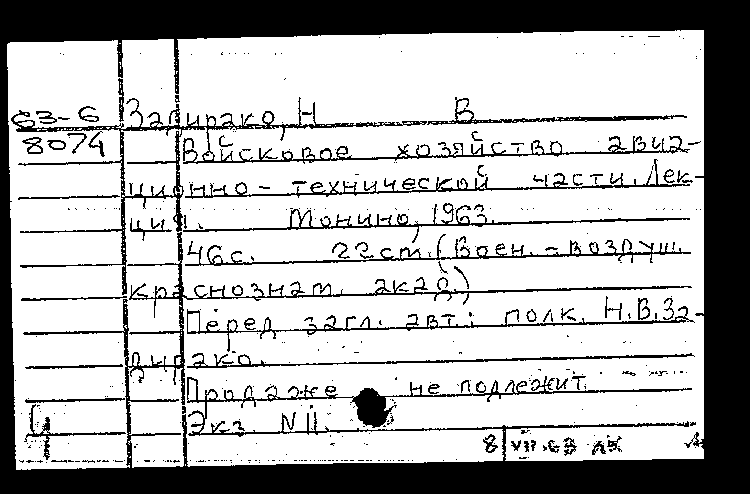 63-6 Задирако, Н В
8074 Войсковое хозяйство авиа-
ционно-технической части. Лек-
ция. Монино, 1963.
46с. 22см. (Воен.-воздуш.
краснознам. акад.)
Перед загл. авт.: полк. Н.В.За-
дирако.
Продаже не подлежит
Экз. N11.
8 VII.63